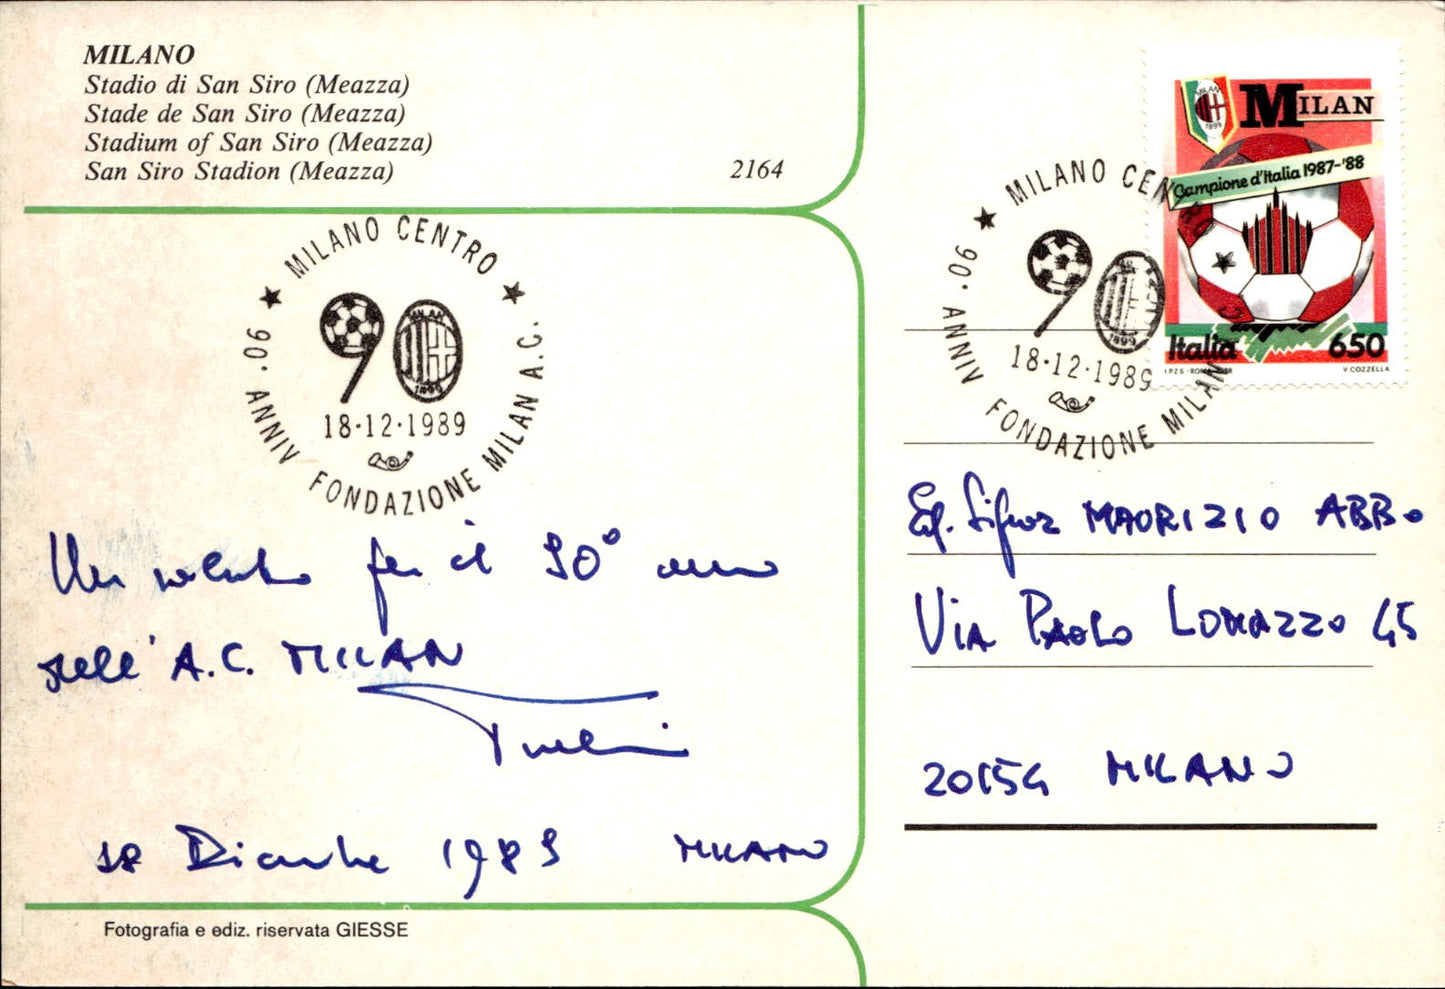 MILANO
Stadio di San Siro (Meazza)
Stade de San Siro (Meazza)
Stadium of San Siro (Meazza)
San Siro Stadion (Meazza)
2164
MILANO CENTRO
90. ANNIV FONDAZIONE MILAN A.C.
90
MILAN
1899
18·12·1989
Un saluto per il 90° anno
dell'A.C. MILAN
18 Dicembre 1989 MILANO
Fotografia e ediz. riservata GIESSE
MILANO CEN
90. ANNIV FONDAZIONE MILAN
90
1899
18·12·1989
MILAN
1899
MILAN
Campione d'Italia 1987-'88
Italia 650
I.P.Z.S. - ROMA - 1988 V. COZZELLA
Eg. Signor MAURIZIO ABBO
VIA PAOLO LOMAZZO 45
20154 MILANO